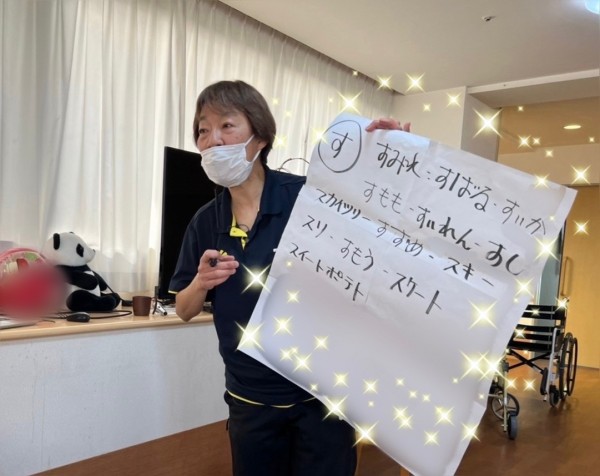 す
すみれ・すばる・すいか
すもも・すいれん・すし
スカイツリー・すずめ・スキー
スリ・すもう・スケート
スイートポテト